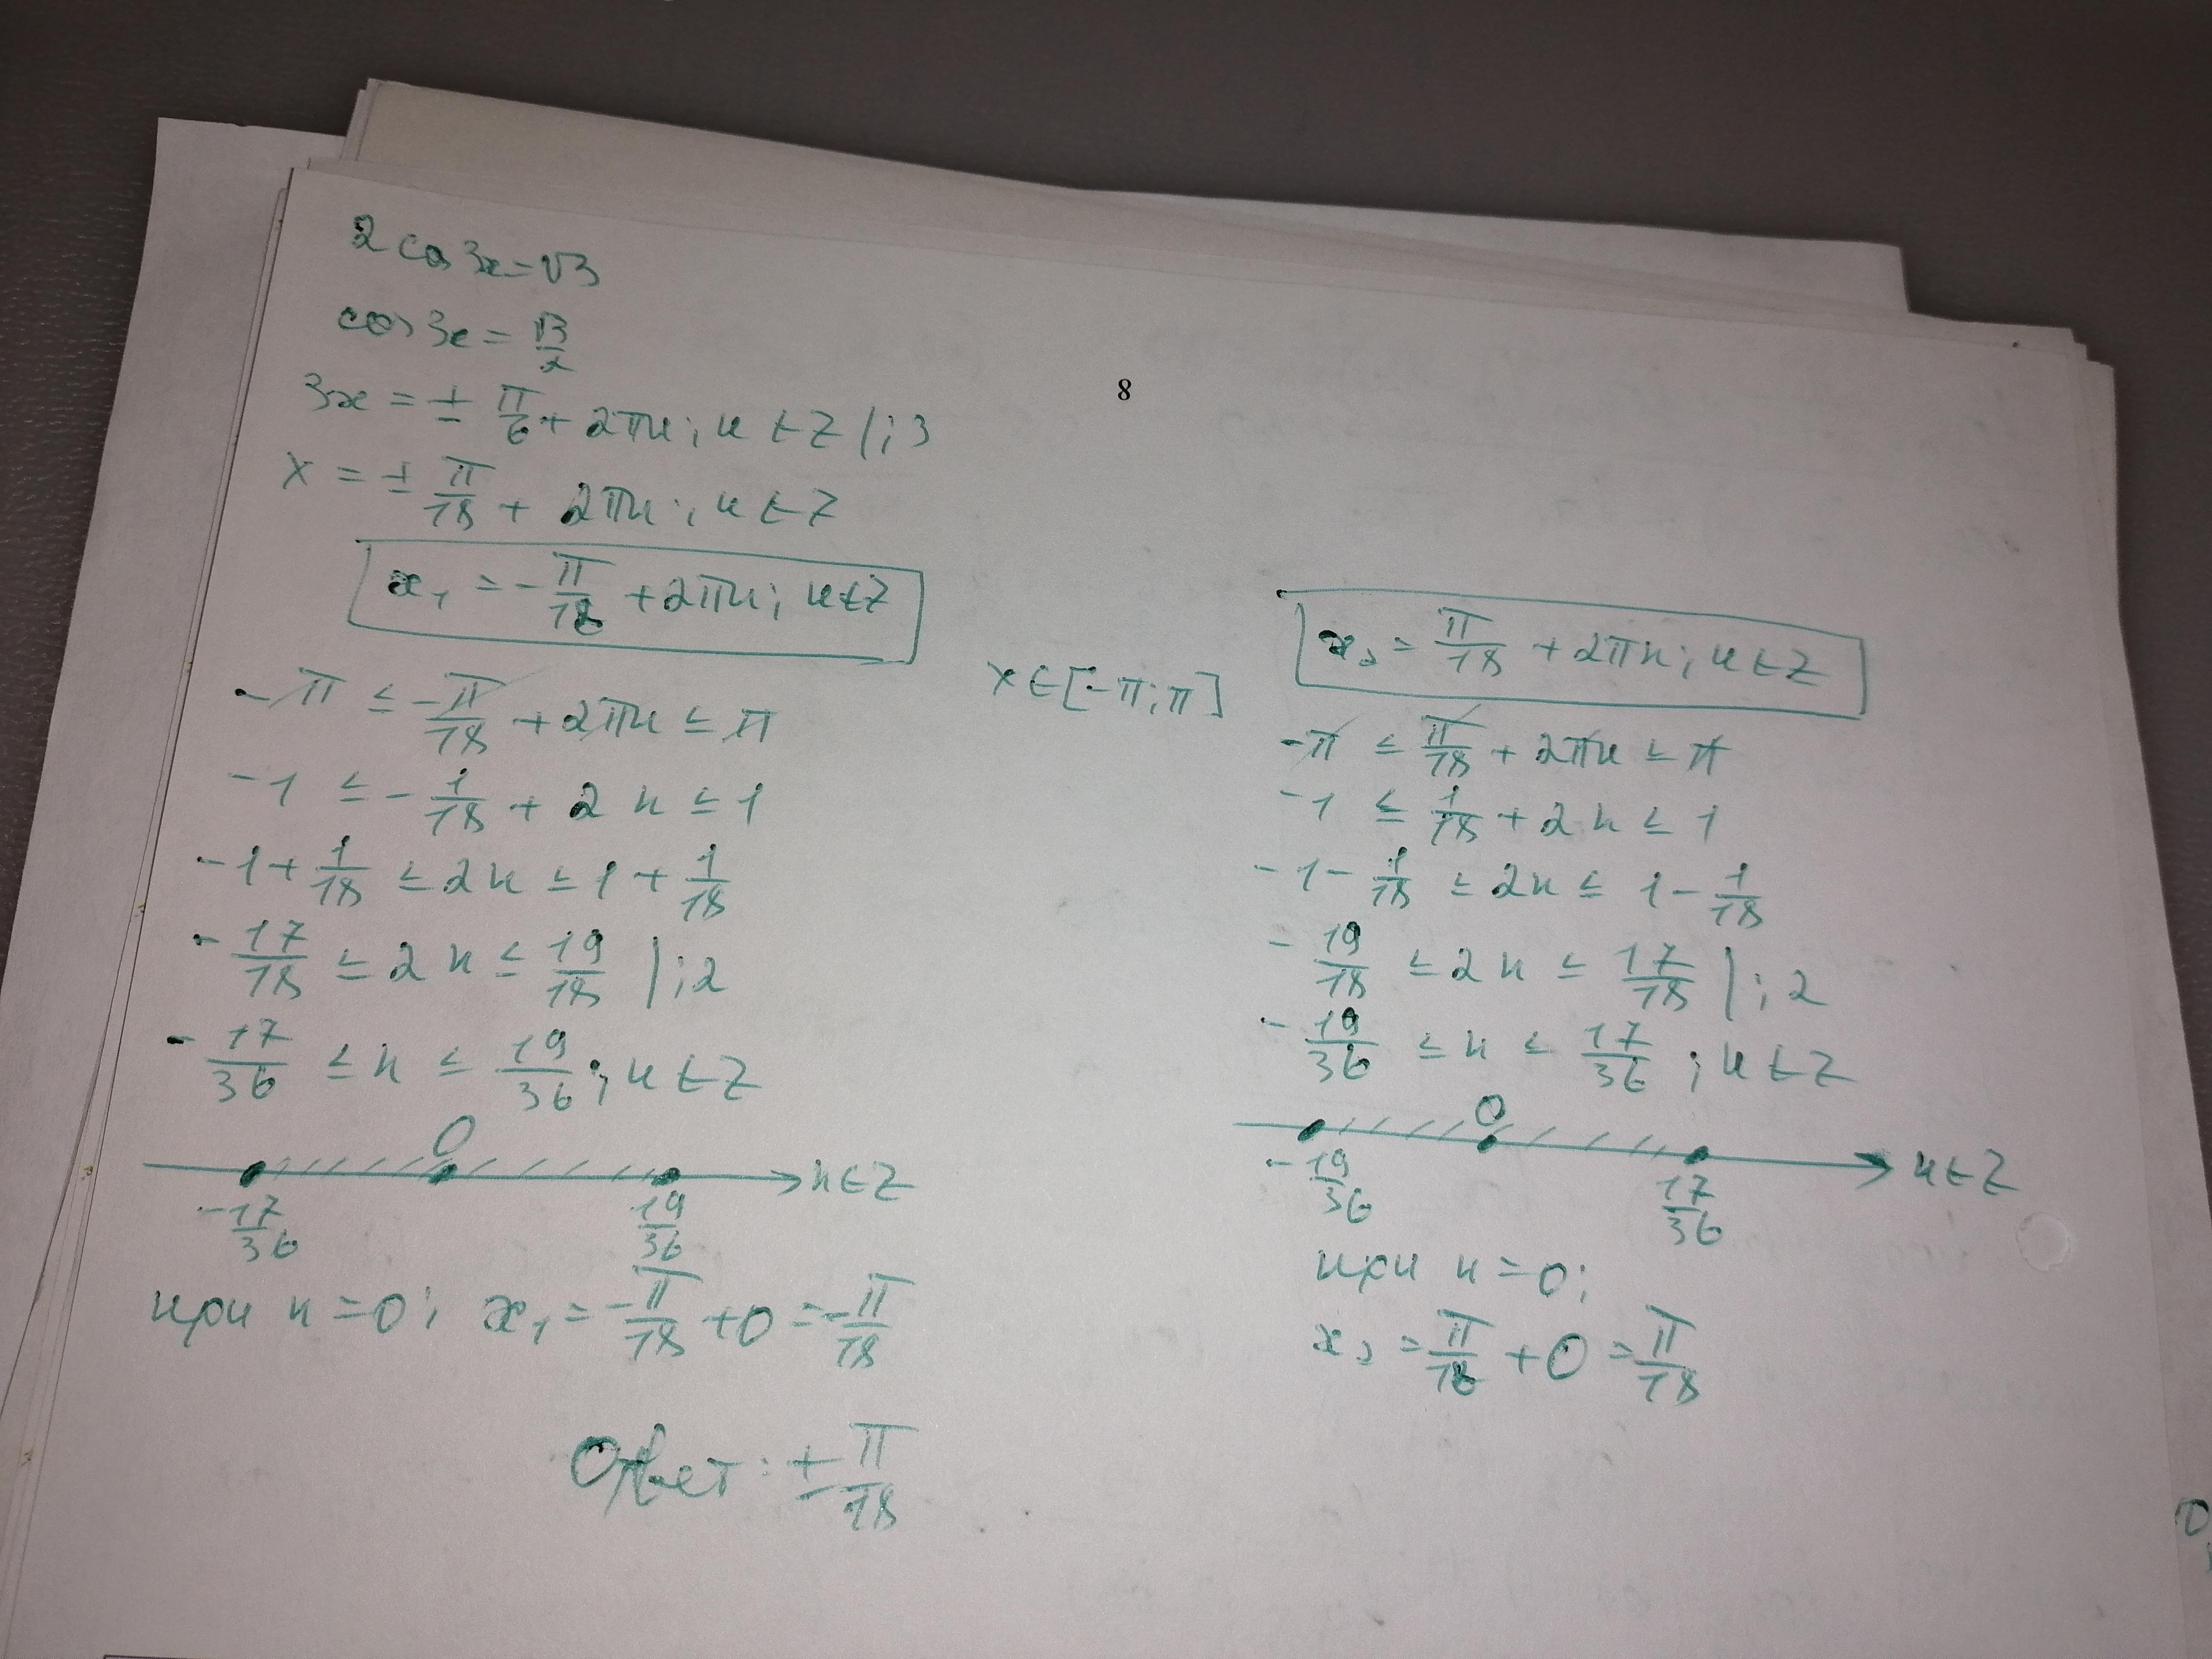 2 cos 3x = √3
cos 3x = √3/2
8
3x = ± π/6 + 2πn; n ∈ Z |:3
x = ± π/18 + 2πn; n ∈ Z
x₁ = -π/18 + 2πn; n ∈ Z
-π ≤ -π/18 + 2πn ≤ π
-1 ≤ -1/18 + 2n ≤ 1
-1 + 1/18 ≤ 2n ≤ 1 + 1/18
-17/18 ≤ 2n ≤ 19/18 |:2
-17/36 ≤ n ≤ 19/36; n ∈ Z
0
n ∈ Z
-17/36 19/36
при n = 0; x₁ = -π/18 + 0 = -π/18
x ∈ [-π; π]
x₂ = π/18 + 2πn; n ∈ Z
-π ≤ π/18 + 2πn ≤ π
-1 ≤ 1/18 + 2n ≤ 1
-1 - 1/18 ≤ 2n ≤ 1 - 1/18
-19/18 ≤ 2n ≤ 17/18 |:2
-19/36 ≤ n ≤ 17/36; n ∈ Z
0
n ∈ Z
-19/36 17/36
при n = 0;
x₂ = π/18 + 0 = π/18
Ответ: ± π/18